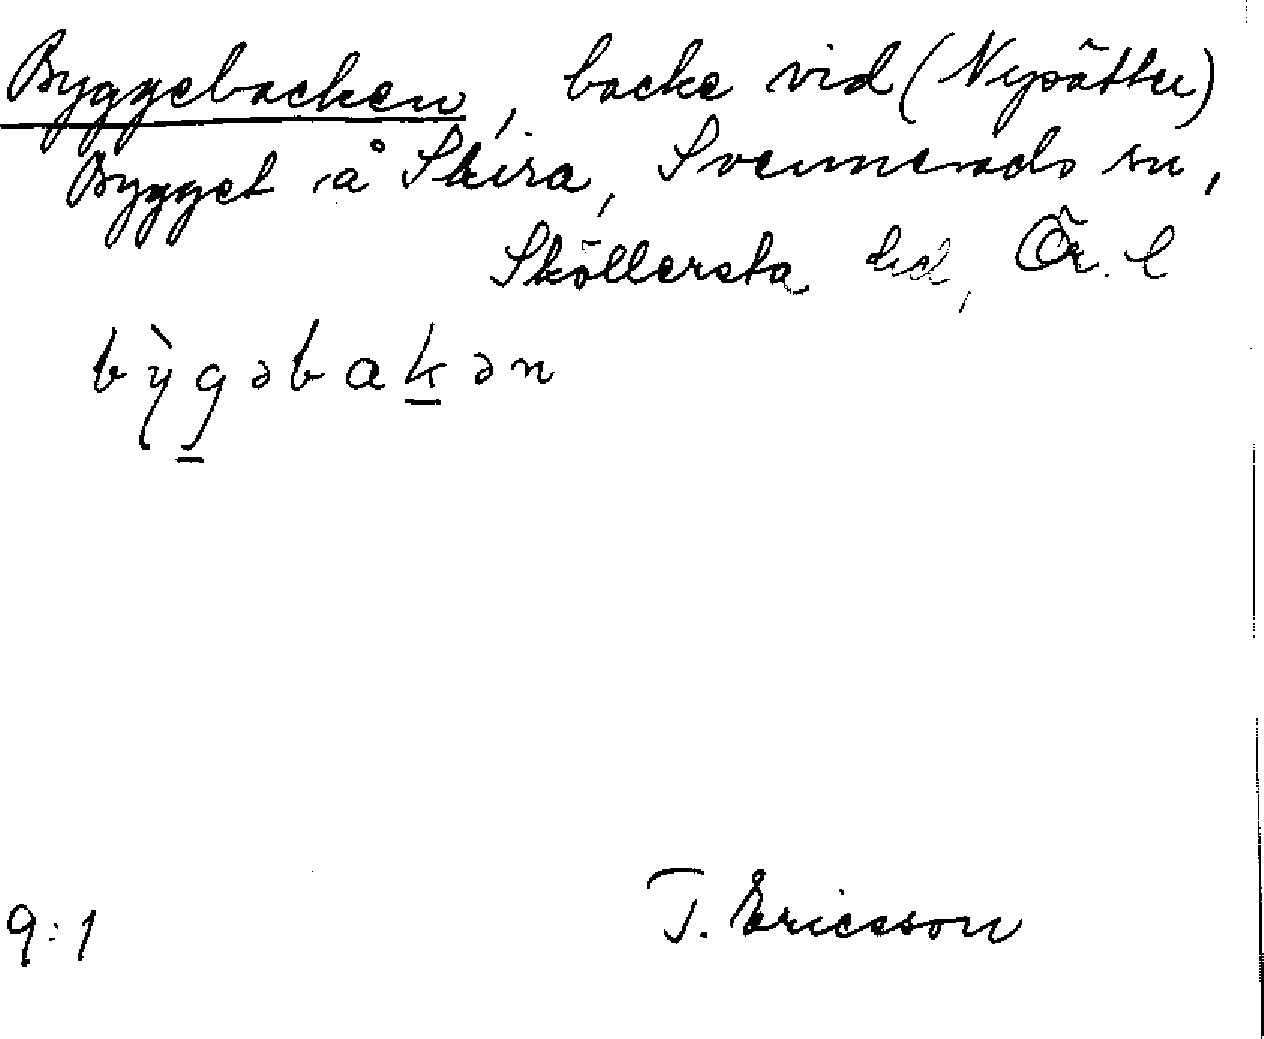 Byggebacken, backe vid (Nysätter)
Bygget å Skira, Svennevads sn,
Sköllersta hd, Ör. l
bỳgəbakən
9:1
T. Ericsson